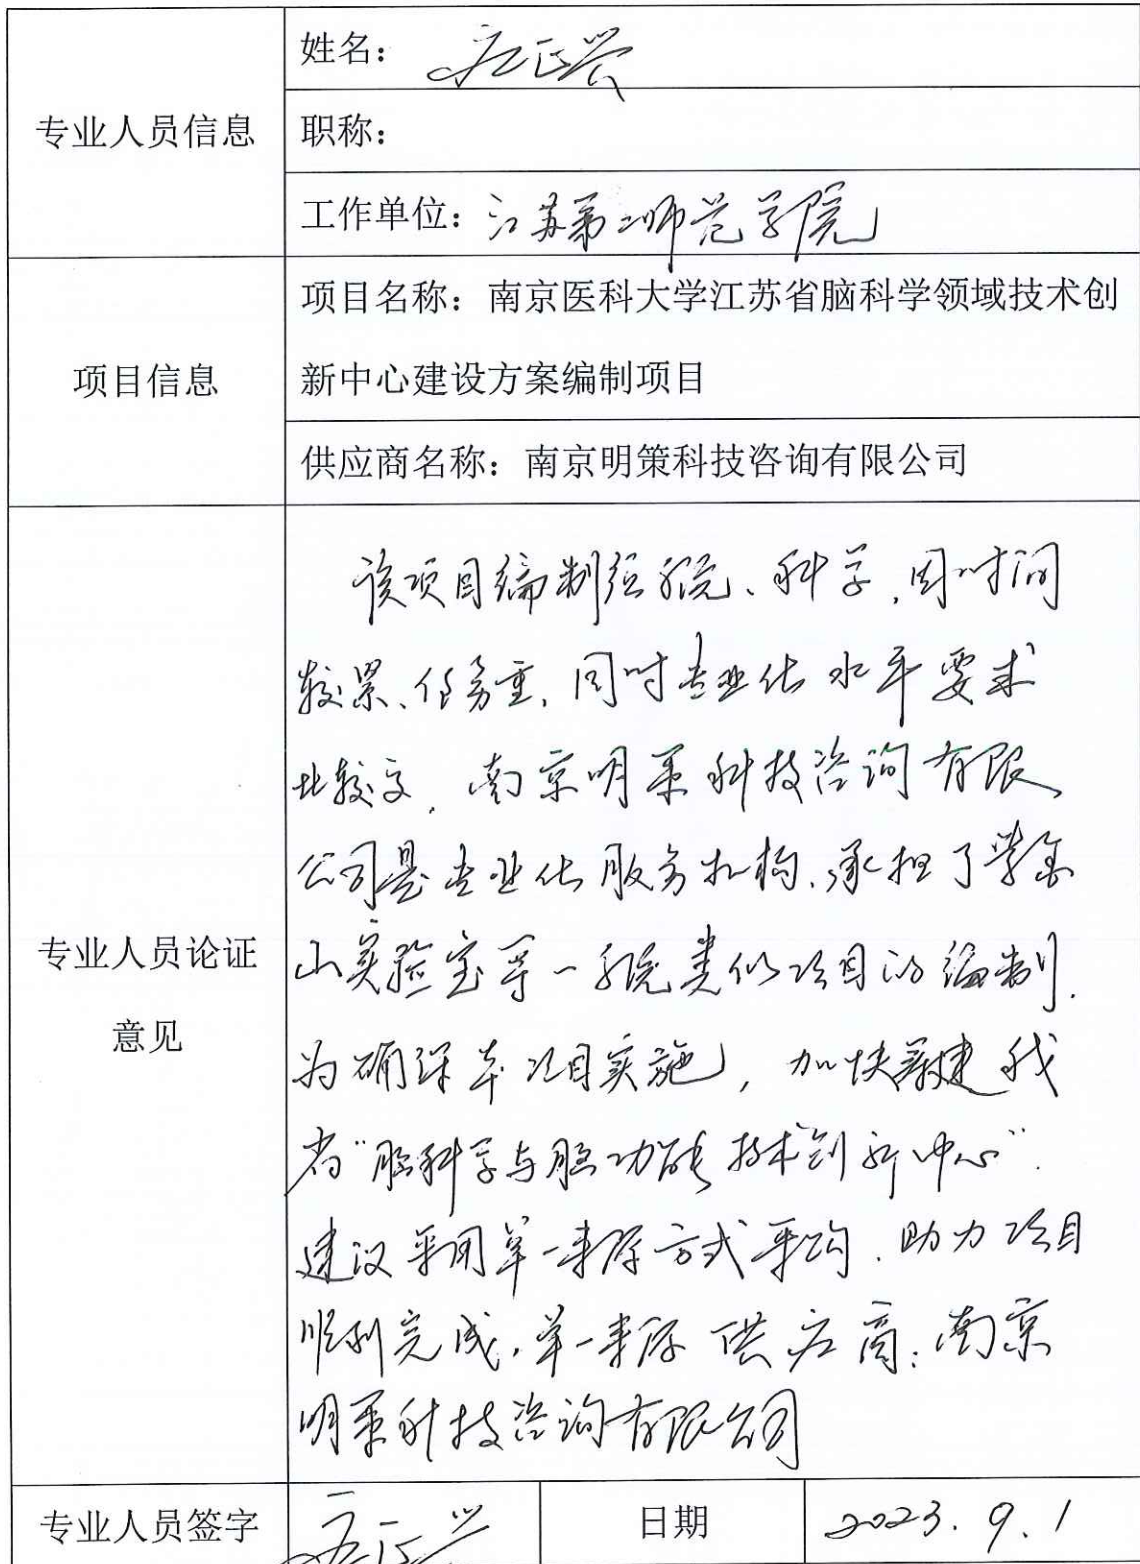 姓名：
专业人员信息
职称：
工作单位：江苏第二师范学院
项目名称：南京医科大学江苏省脑科学领域技术创
项目信息
新中心建设方案编制项目
供应商名称：南京明策科技咨询有限公司
该项目编制须系统、科学，因时间
较紧、任务重，同时专业化水平要求
比较高，南京明策科技咨询有限
公司是专业化服务机构，承担了紫金
山实验室等一系统类似项目的编制，
专业人员论证
意见
为确保本项目实施，加快筹建我
省“脑科学与脑功能技术创新中心”。
建议采用单一来源方式采购，助力项目
顺利完成，单一来源供应商：南京
明策科技咨询有限公司
专业人员签字
日期
2023.9.1